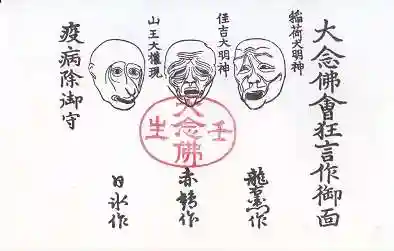 大念佛會狂言作御面
稲荷大明神
住吉大明神
山王大權現
疫病除御守
龍右衛門作
赤鶴作
日氷作
大念佛
壬生